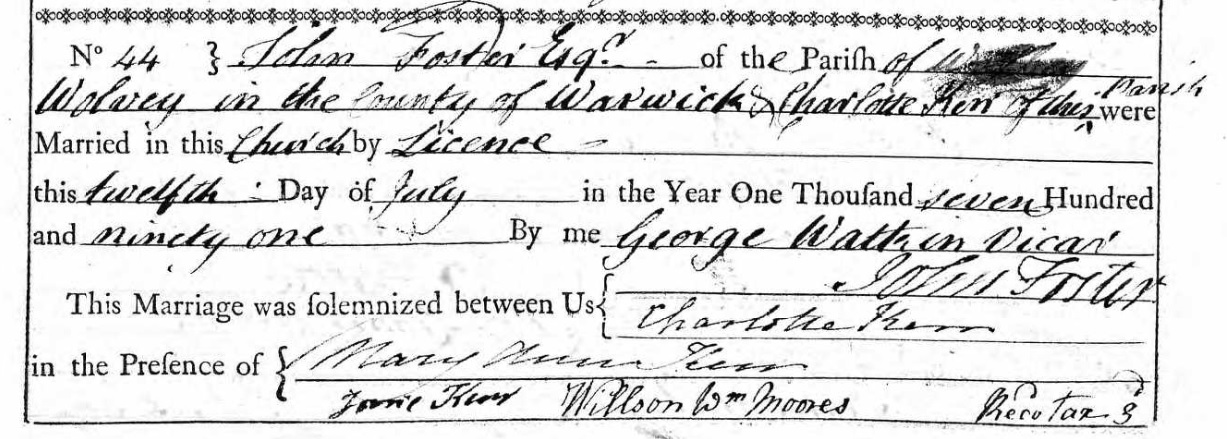 Nº 44 } John Foster Esqr. - of the Pariſh of
Wolvey in the County of Warwick & Charlotte Kerr of this Parish were
Married in this Church by Licence -
this twelfth : Day of July in the Year One Thouſand seven Hundred
and ninety one By me George Watkin Vicar
This Marriage was ſolemnized between Us { John Foster
Charlotte Kerr
in the Preſence of { Mary Ann Kerr
Jane Kerr Willson Wm Moores Recd Tax 3